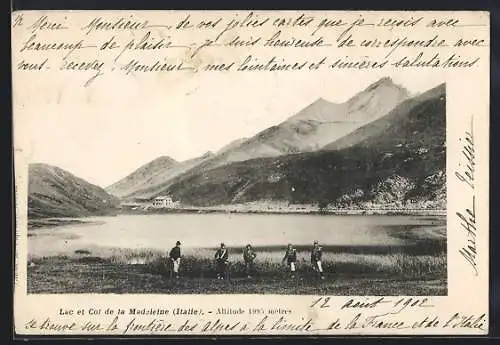 Merci Monsieur, de vos jolies cartes que je reçois avec
beaucoup de plaisir. je suis heureuse de correspondre avec
vous. recevez Monsieur, mes lointaines et sincères salutations.
Marthe Teissier
Lac et Col de la Madeleine (Italie). - Altitude 1995 mètres
12 Août 1902
se trouve sur la frontière des alpes à la limite de la France et de l'Italie